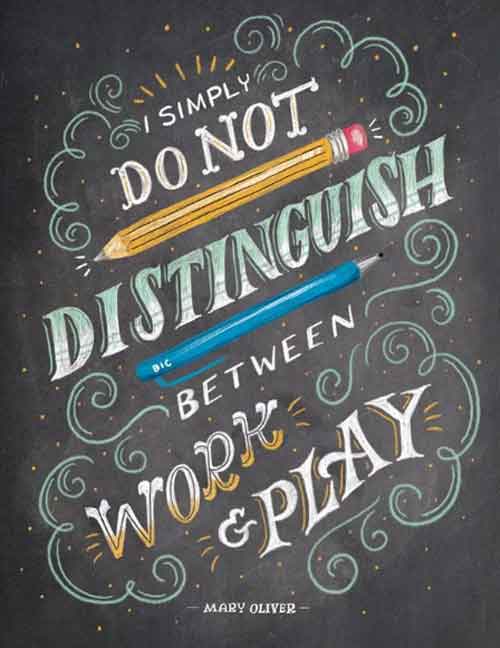 I SIMPLY
DO NOT
DISTINGUISH
BIC
BETWEEN
WORK
& PLAY
— MARY OLIVER —